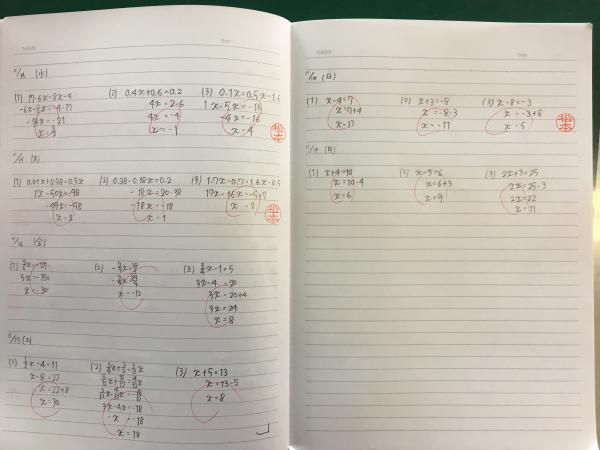 11/14 (水)
(1) 17-6x=8x-4
-6x-8x=-4-17
-14x=-21
(2) 0.4x+0.6=0.2
4x=2-6
4x=-4
x=-1
(3) 0.1x=0.5x-1.6
1x-5x=-16
-4x=-16
x=4
松本
(1) 0.01x+0.98=0.5x
1x-50x=-98
-49x=-98
x=2
(2) 0.38-0.18x=0.2
-18x=20-38
-18x=-18
x=1
(3) 1.7x-0.7=1.6x-0.5
17x-16x=-5+7
x=2
松本
11/16 (金)
(1)
5x=-150
x=-30
(2)
x=-12
(3) 3/4x-1=5
3x-4=20
3x=20+4
3x=24
x=8
11/17 (土)
(1) 1/2x-4=11
x-8=22
x=22+8
x=30
(2)
3x-4x=-18
-x=-18
x=18
(3) x+5=13
x=13-5
x=8
11/18 (日)
(1) x-4=7
x=7+4
x=11
(2) x+3=-8
x=-8-3
x=-11
(3) x-8=-3
x=-3+8
x=5
松本
11/19 (月)
(1) x+4=10
x=10-4
x=6
(2) x-3=6
x=6+3
x=9
(3) 2x+3=25
2x=25-3
2x=22
x=11